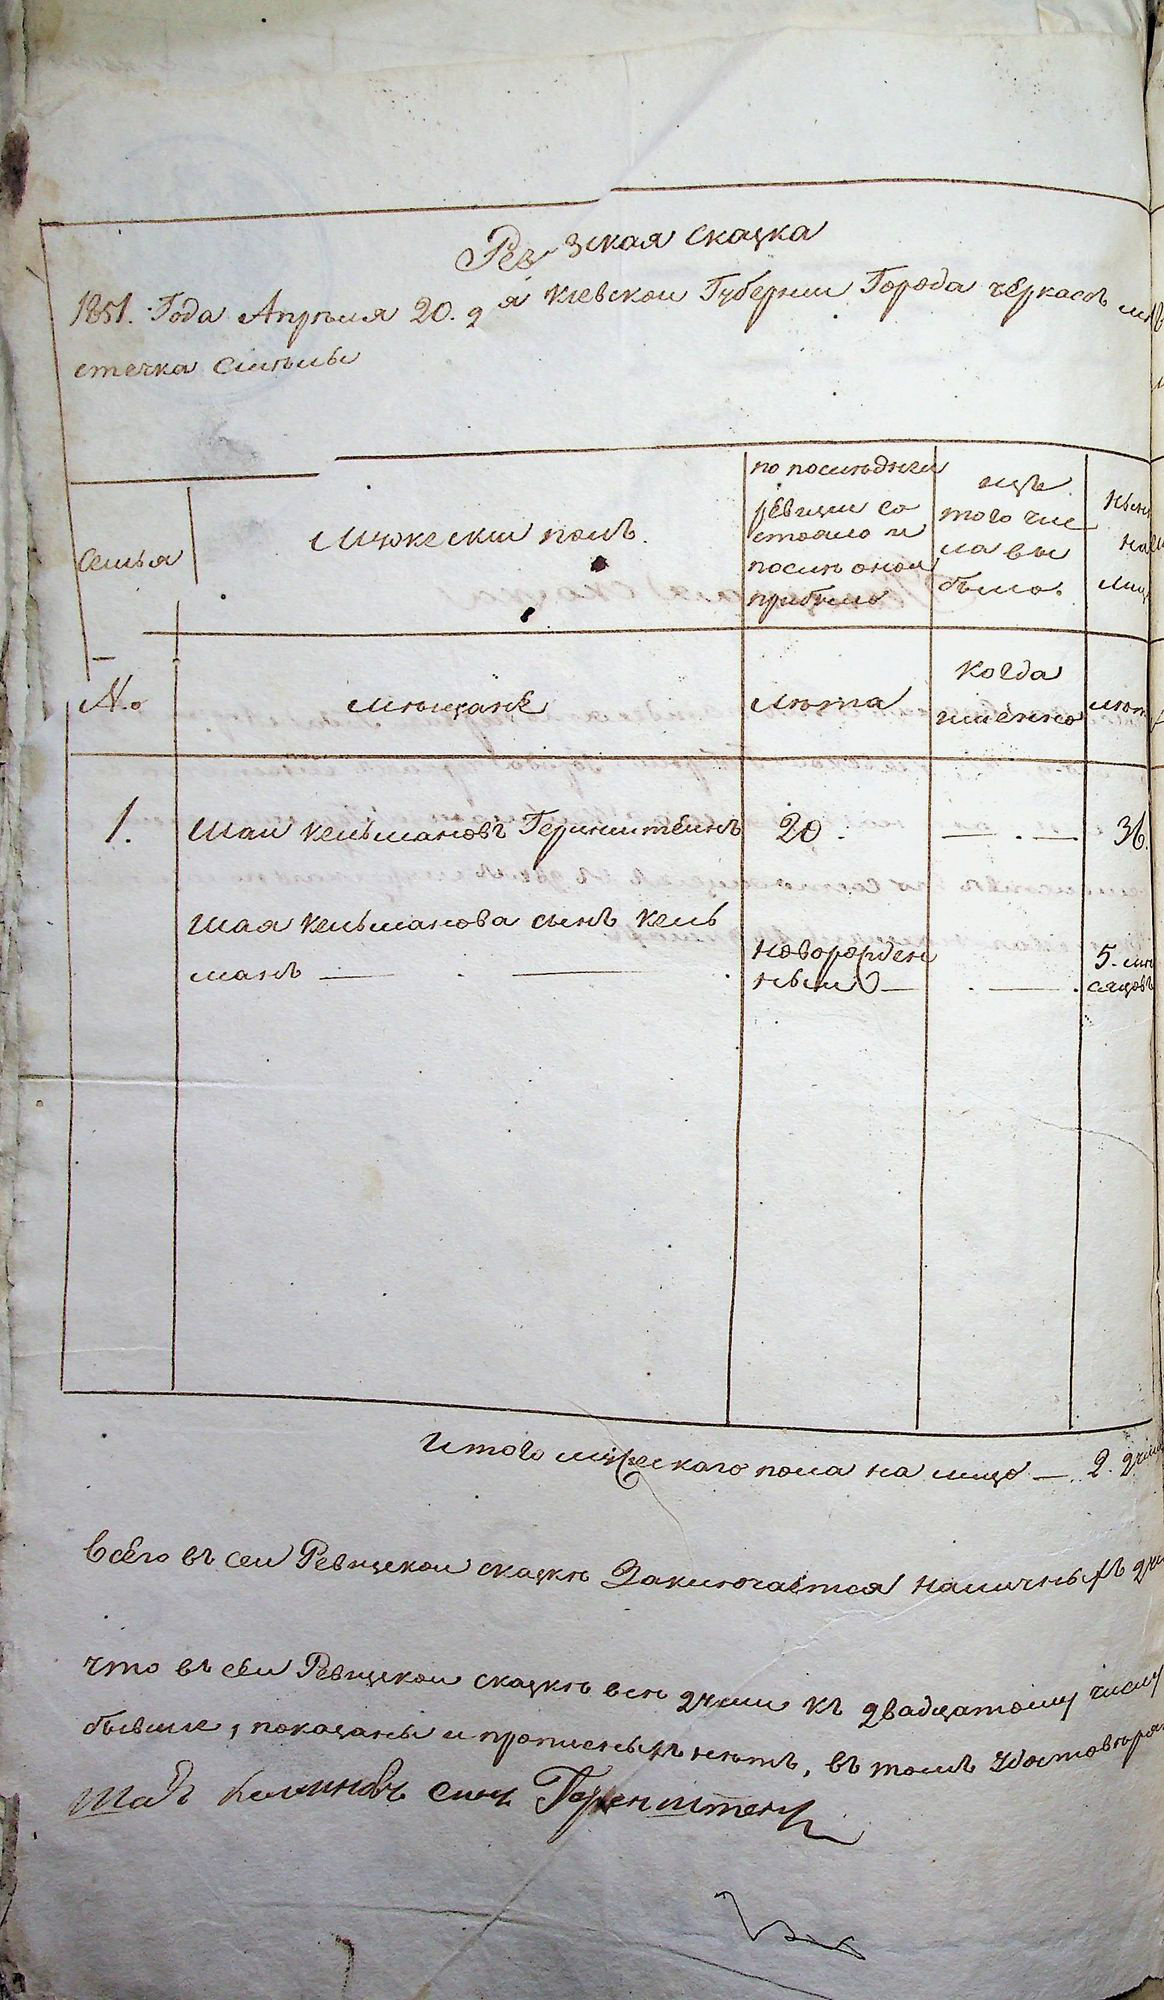 Ревзская сказка
1851. Года Апреля 20. дя Киевской Губернии Города Черкасъ мѣ
стечка Смѣлы
Семья
Мужескии полъ.
по послѣдней
ревизии со
стояло и
послѣ оной
прибыло
изъ
того чис
ла вы
было.
нын
на
лиц
No
мѣщане
лѣта
когда
именно
лѣт
1.
Шаи Кельмановъ Геринштейнъ
20.
36.
Шая Кельманова сынъ Кель
манъ
новорожден
ный
5. мѣ
сяцовъ
Итого мужескаго пола на лицо — 2. души
всего въ сей Ревизской сказкѣ Заключается наличныхъ ду
что въ сей Ревизской сказкѣ всѣ души къ двадцатому числу
бывшие, показаны и прописныхъ нѣтъ, въ томъ удостовѣря
Келминовъ синъ Геренштенъ